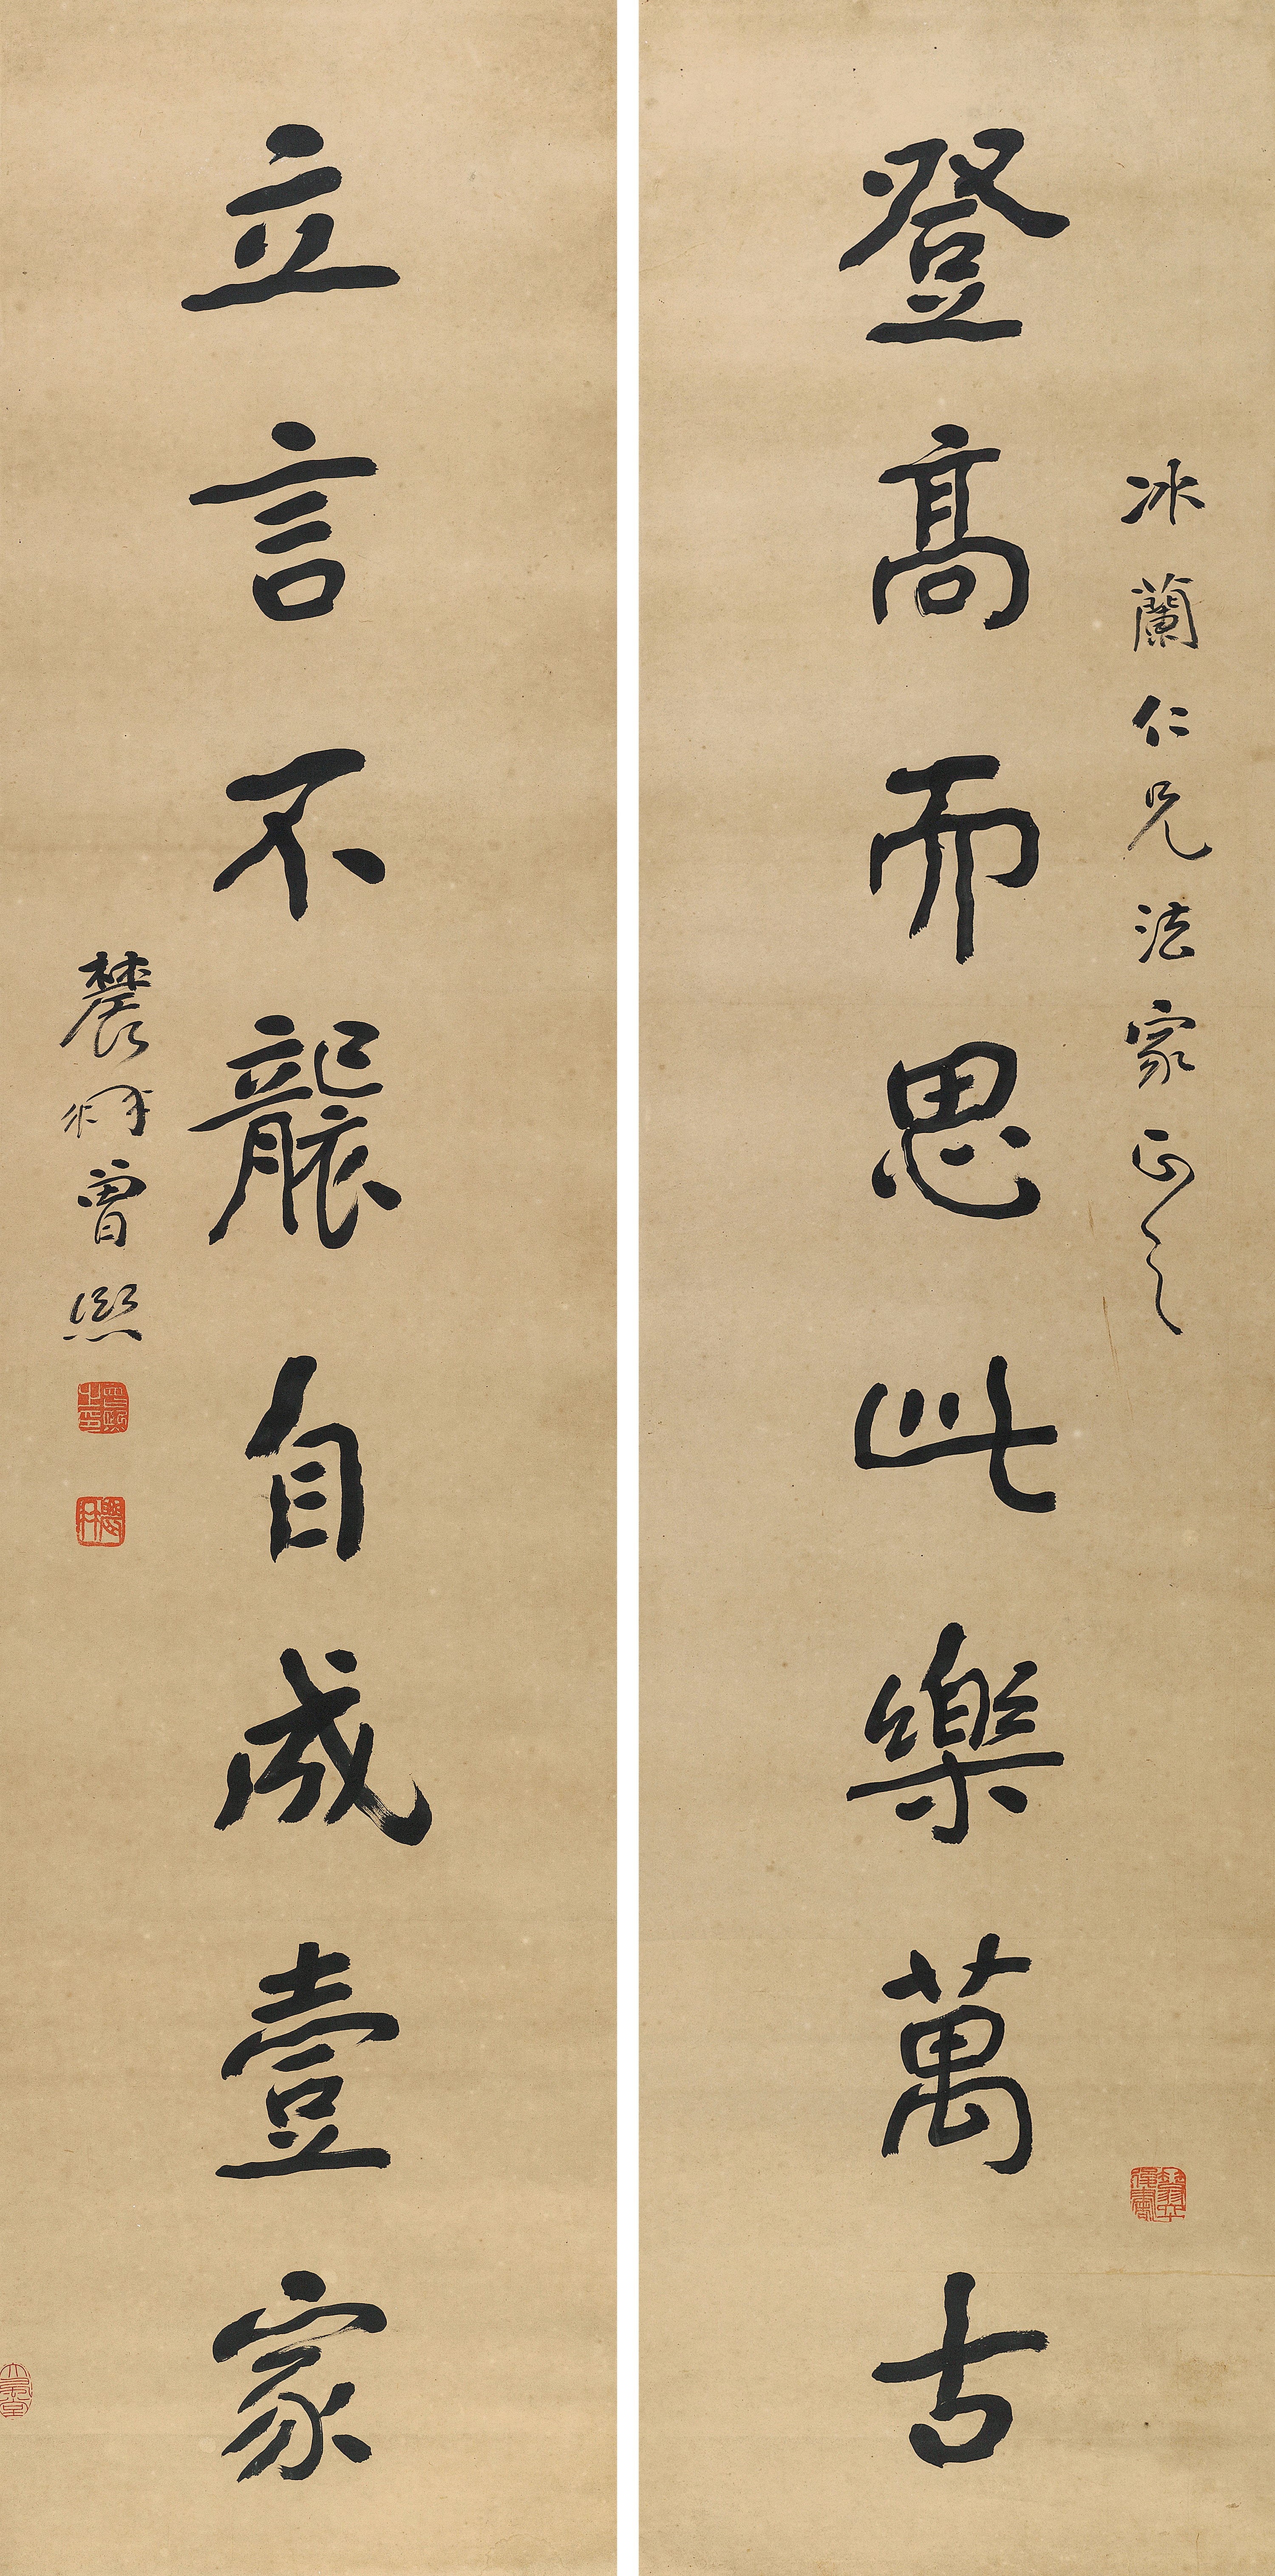 冰蘭仁兄法家正之
登高而思此樂萬古
立言不襲自成壹家
農髯曾熙
曾熙之印
農髯